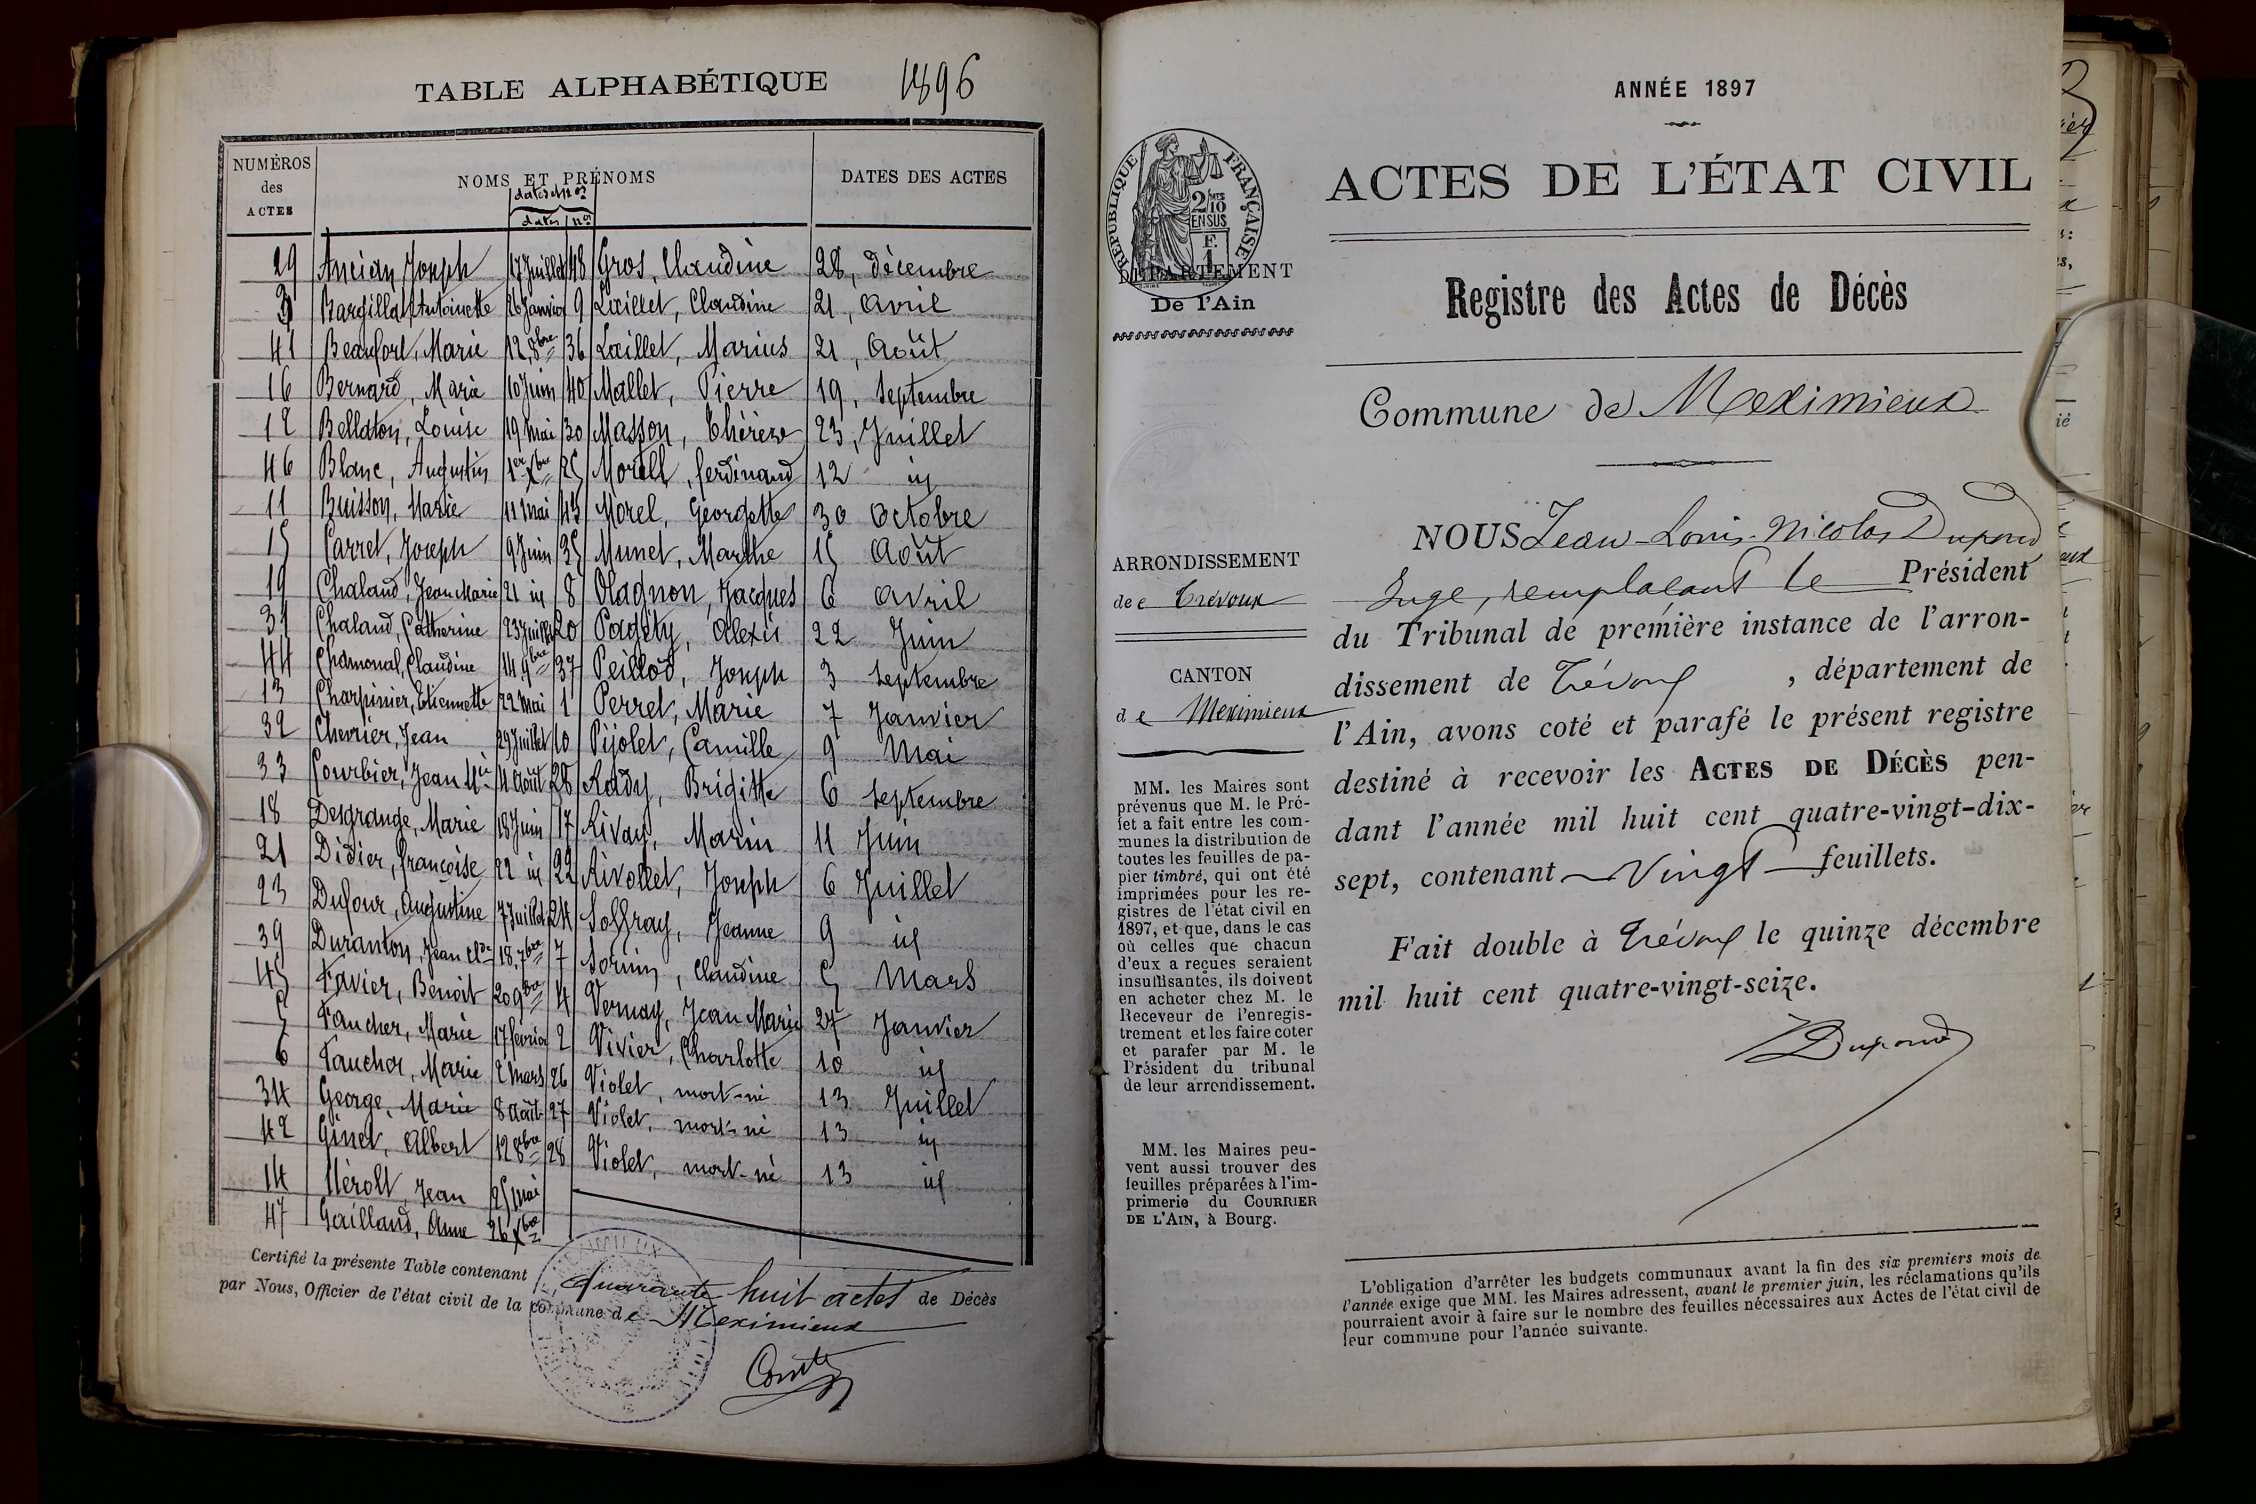 TABLE ALPHABÉTIQUE 1896
NUMÉROS
des
ACTES
NOMS ET PRÉNOMS
dates et nos
dates nos
DATES DES ACTES
29 Ancian, Joseph 17 Juillet 48 Gros, Claudine 28, décembre
3 Bargillat, Antoinette 26 Janvier 9 Lœillet, Claudine 21, Avril
41 Beaufort, Marie 12, 8bre 36 Lœillet, Marius 21, Août
16 Bernard, Marie 10 Juin 40 Mallet, Pierre 19, septembre
12 Bellaton, Louise 19 Mai 30 Masson, Thérèse 23, Juillet
46 Blanc, Augustin 1er Xbre 25 Morell, ferdinand 12 id
11 Buisson, Marie 11 Mai 43 Morel, Georgette 30 Octobre
15 Carret, Joseph 9 Juin 35 Munet, Marthe 15 Août
19 Chaland, Jean Marie 21 id 8 Olagnon, Jacques 6 Avril
31 Chaland, Catherine 23 Juillet 20 Pagéty, Alexis 22 Juin
44 Chamonal, Claudine 14 9bre 37 Peillod, Joseph 3 septembre
13 Charpinier, Etiennette 22 Mai 1 Perret, Marie 7 Janvier
32 Chevrier, Jean 29 Juillet 10 Pijolet, Camille 9 Mai
33 Courbier, Jean Mie 4 Août 28 Rády, Brigitte 6 septembre
18 Desgrange, Marie 18 Juin 17 Rivay, Marin 11 Juin
21 Didier, françoise 22 id 22 Rivollet, Joseph 6 Juillet
23 Dufour, Augustine 7 Juillet 24 Soffray, Jeanne 9 id
39 Duranton, Jean Cde 18, 7bre 7 Sornin, Claudine 5 Mars
45 Favier, Benoit 20 9bre 4 Vernay, Jean Marie 27 Janvier
5 Faucher, Marie 17 février 2 Vivier, Charlotte 10 id
6 Faucher, Marie 2 mars 26 Violet, mort-né 13 Juillet
34 George, Marie 8 Août 27 Violet, mort-né 13 id
42 Ginet, Albert 12 8bre 28 Violet, mort-né 13 id
14 Hérolt, Jean 25 Mai
47 Gailland, Anne 26 Xbre
Certifié la présente Table contenant quarante huit actes de Décès
par Nous, Officier de l'état civil de la commune de Meximieux
ANNÉE 1897
RÉPUBLIQUE FRANÇAISE
2/10 EN SUS
F. 1
ACTES DE L'ÉTAT CIVIL
DÉPARTEMENT
De l'Ain
Registre des Actes de Décès
Commune de Meximieux
ARRONDISSEMENT
de Trévoux
CANTON
de Meximieux
MM. les Maires sont
prévenus que M. le Pré-
fet a fait entre les com-
munes la distribution de
toutes les feuilles de pa-
pier timbré, qui ont été
imprimées pour les re-
gistres de l'état civil en
1897, et que, dans le cas
où celles que chacun
d'eux a reçues seraient
insuffisantes, ils doivent
en acheter chez M. le
Receveur de l'enregis-
trement et les faire coter
et parafer par M. le
Président du tribunal
de leur arrondissement.
MM. les Maires peu-
vent aussi trouver des
feuilles préparées à l'im-
primerie du COURRIER
DE L'AIN, à Bourg.
NOUS Jean-Louis-Nicolas Dupond
Juge, remplaçant le Président
du Tribunal de première instance de l'arron-
dissement de Trévoux, département de
l'Ain, avons coté et parafé le présent registre
destiné à recevoir les ACTES DE DÉCÈS pen-
dant l'année mil huit cent quatre-vingt-dix-
sept, contenant Vingt feuillets.
Fait double à Trévoux le quinze décembre
mil huit cent quatre-vingt-seize.
Dupond
L'obligation d'arrêter les budgets communaux avant la fin des six premiers mois de
l'année exige que MM. les Maires adressent, avant le premier juin, les réclamations qu'ils
pourraient avoir à faire sur le nombre des feuilles nécessaires aux Actes de l'état civil de
leur commune pour l'année suivante.